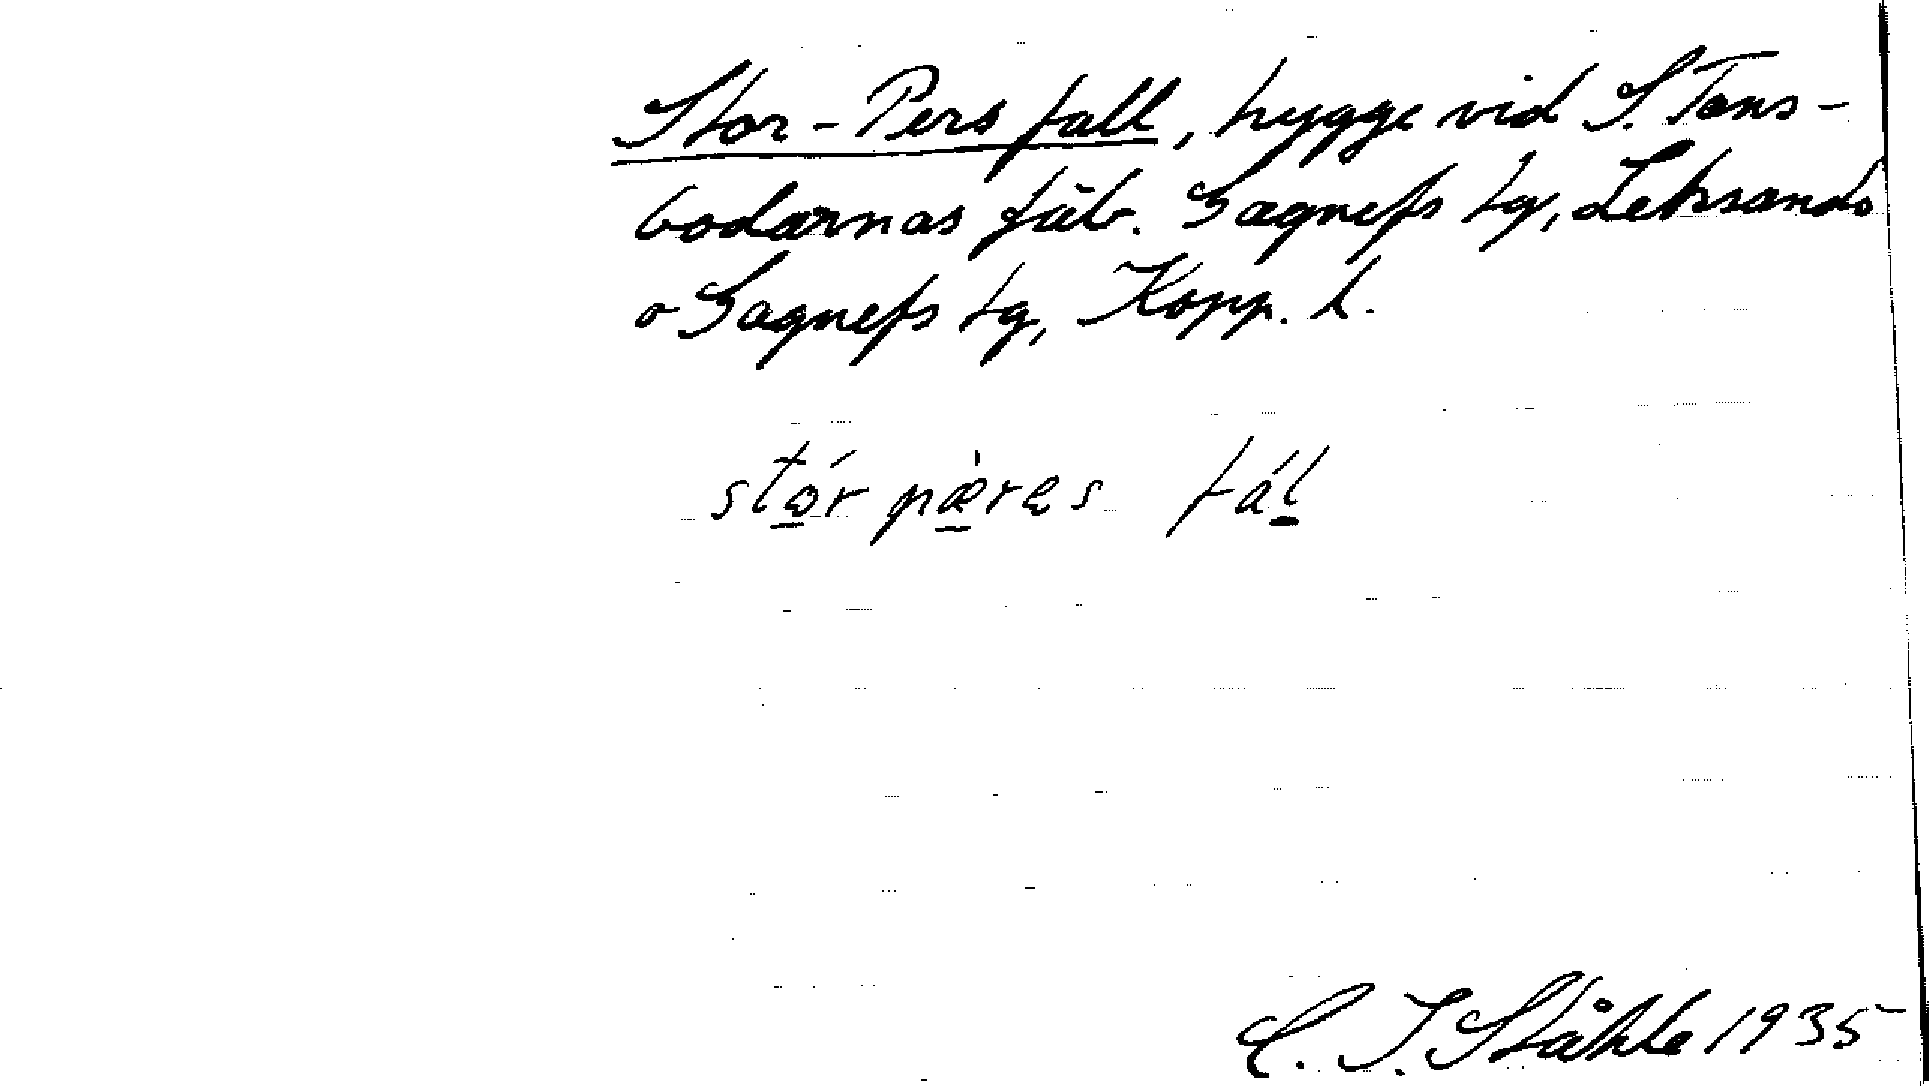 Stor-Pers fall, hygge vid S. Tans-
bodarnas fäb. Gagnefs tg, Leksands
o Gagnefs tg, Kopp. l.
stør pæres fál
C. I. Ståhle 1935